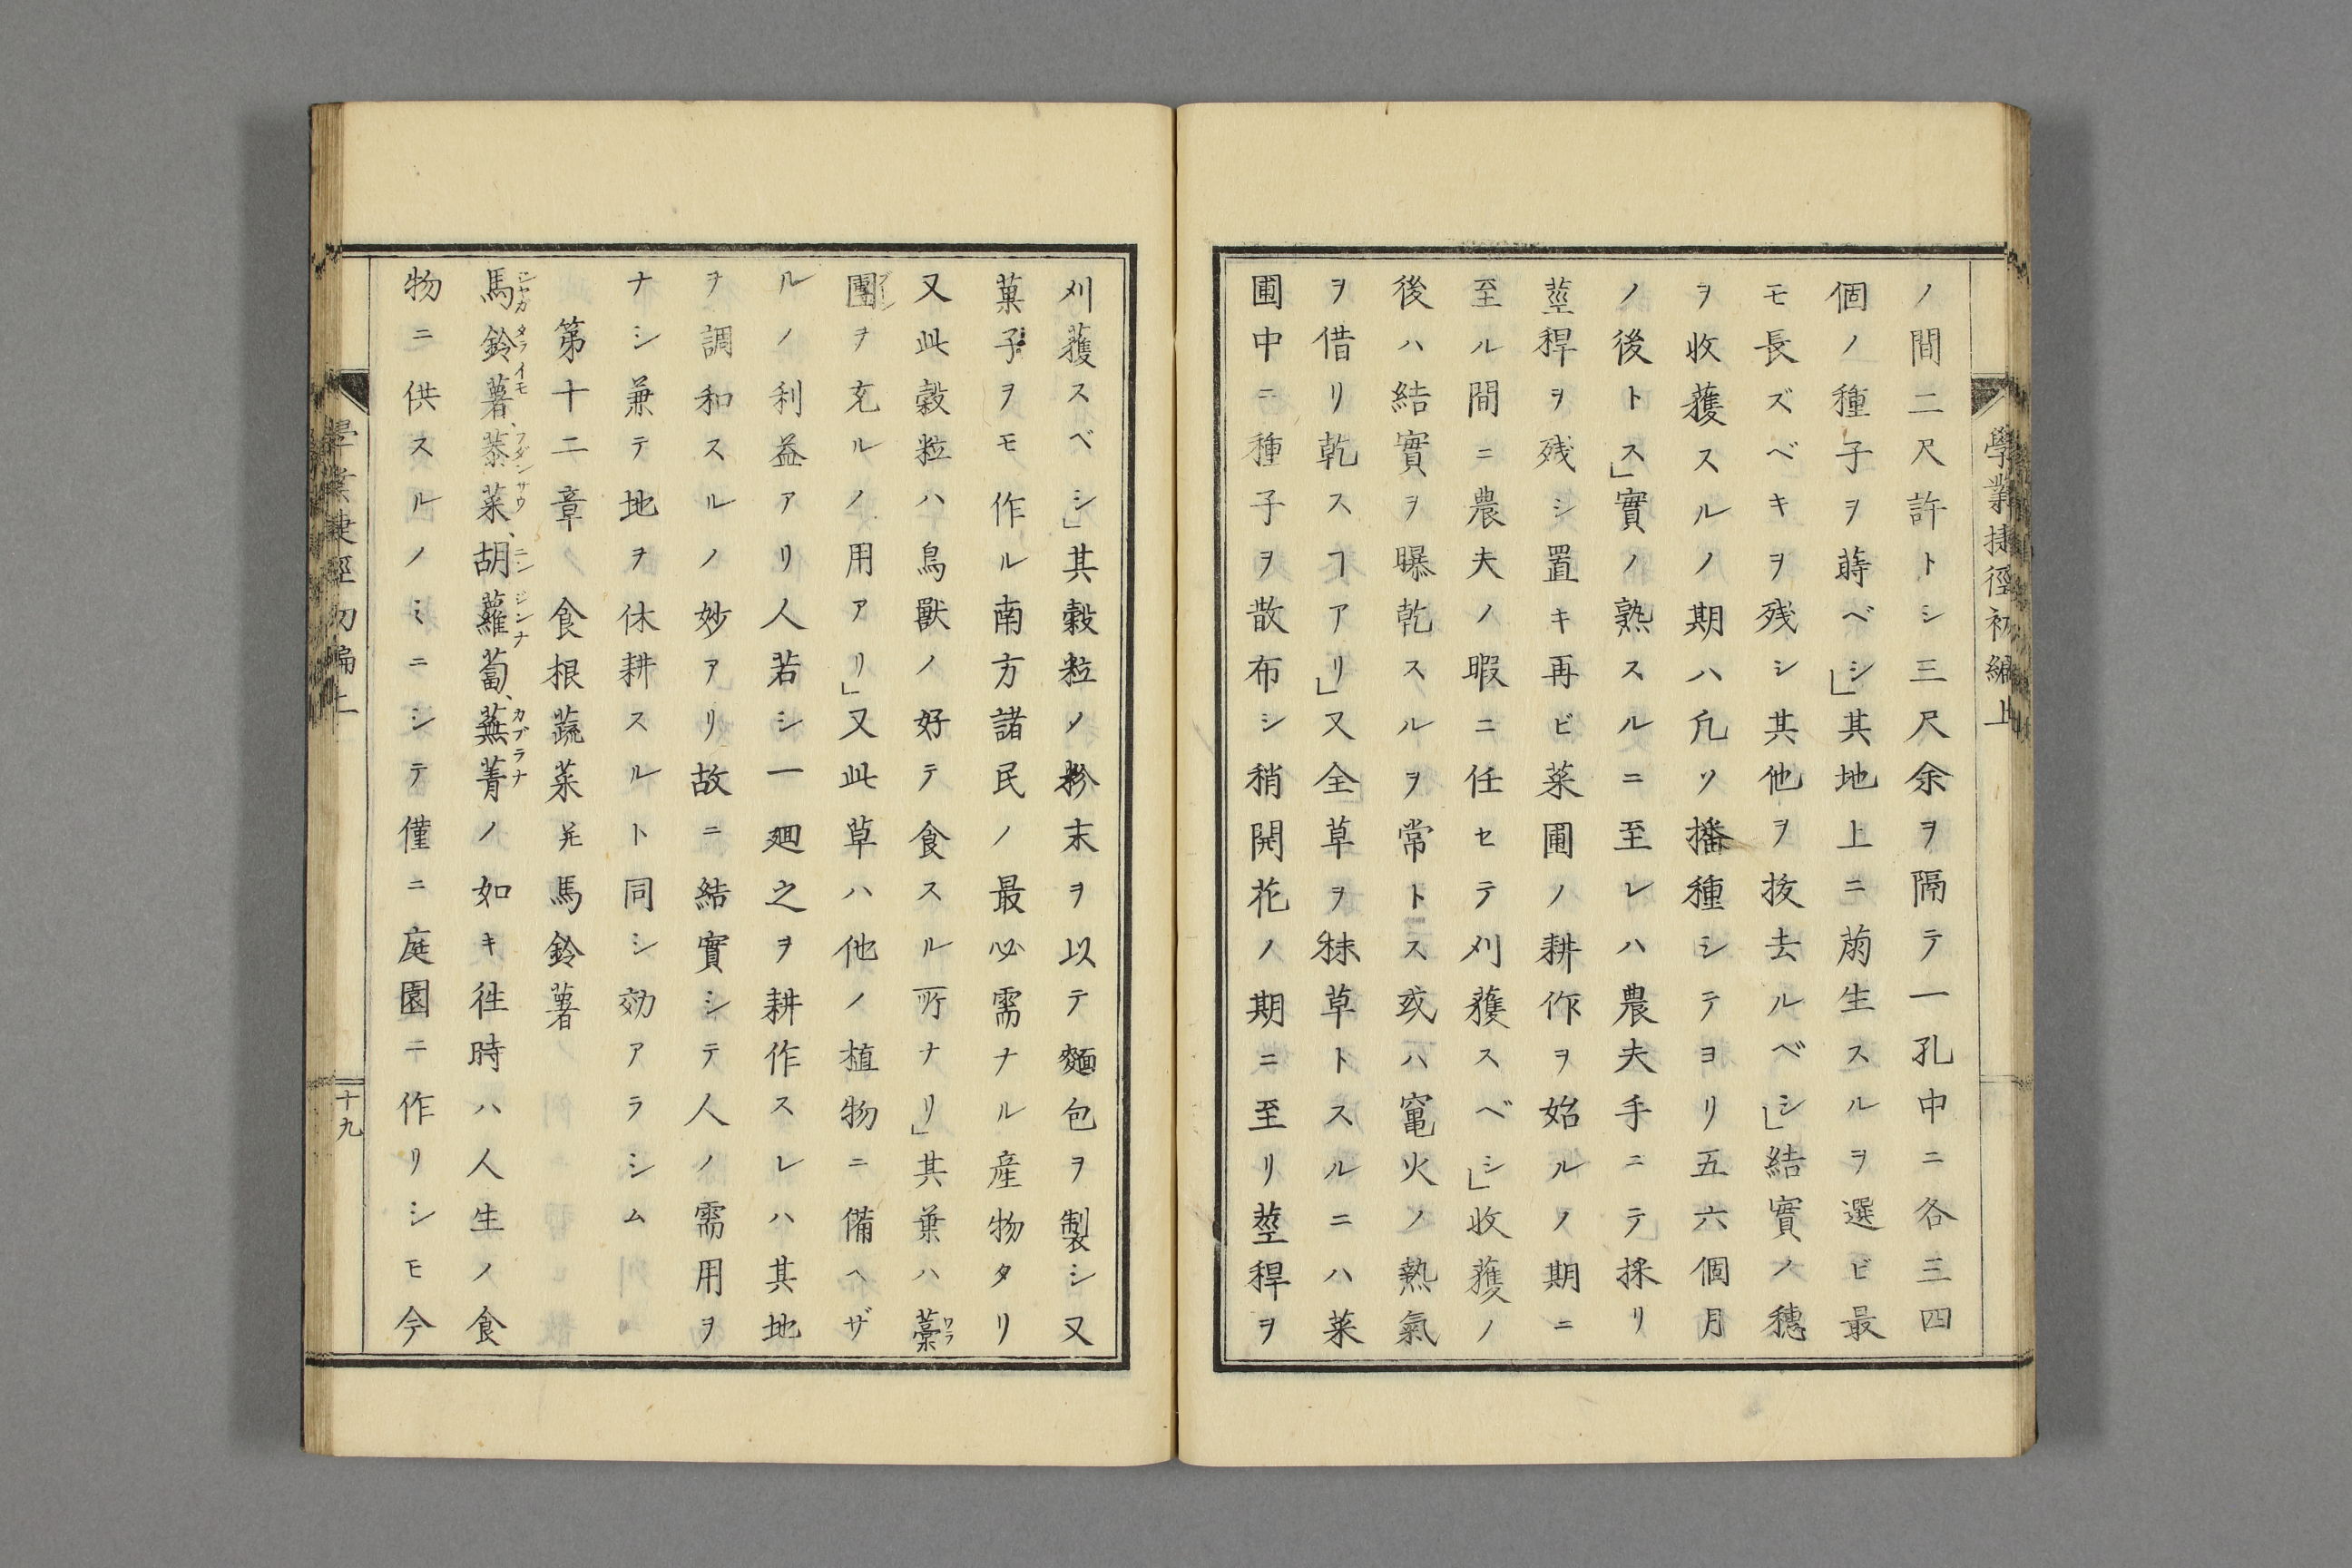 學業捷徑初編上
ノ間二尺許トシ三尺余ヲ隔テ一孔中ニ各三四
個ノ種子ヲ蒔ベシ」其地上ニ萠生スルヲ選ビ最
モ長ズベキヲ残シ其他ヲ抜去ルベシ」結實ノ穗
ヲ收穫スルノ期ハ凢ソ播種シテヨリ五六個月
ノ後トス」實ノ熟スルニ至レハ農夫手ニテ採リ
莖稈ヲ残シ置キ再ビ菜圃ノ耕作ヲ始ルノ期ニ
至ル間ニ農夫ノ暇ニ任セテ刈穫スベシ」收穫ノ
後ハ結實ヲ曝乾スルヲ常トス或ハ竃火ノ熱氣
ヲ借リ乾スヿアリ」又全草ヲ秣草トスルニハ菜
圃中ニ種子ヲ散布シ稍開花ノ期ニ至リ莖稈ヲ
刈穫スベシ」其穀粒ノ粉末ヲ以テ麵包ヲ製シ又
菓子ヲモ作ル南方諸民ノ最必需ナル産物タリ
又此穀粒ハ鳥獸ノ好テ食スル所ナリ」其葉ハ藁ワラ
團ブトンヲ充ルノ用アリ」又此草ハ他ノ植物ニ備ヘザ
ルノ利益アリ人若シ一廻之ヲ耕作スレハ其地
ヲ調和スルノ妙アリ故ニ結實シテ人ノ需用ヲ
ナシ兼テ地ヲ休耕スルト同シ効アラシム
第十二章 食根蔬菜并馬鈴薯
馬鈴薯ジャガタライモ、菾菜フダンサウ、胡蘿蔔ニンジンナ、蕪菁カブラナノ如キ徃時ハ人生ノ食
物ニ供スルノミニシテ僅ニ庭園ニ作リシモ今
學業捷徑初編上
十九